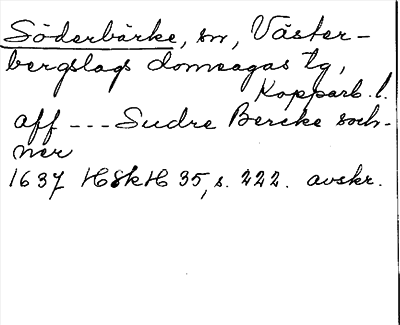 Söderbärke, sn, Väster-
bergslags domsagas tg,
Kopparb. l.
aff --- Sudre Bercke soch-
ner
1637 HSkH 35, s. 222. avskr.